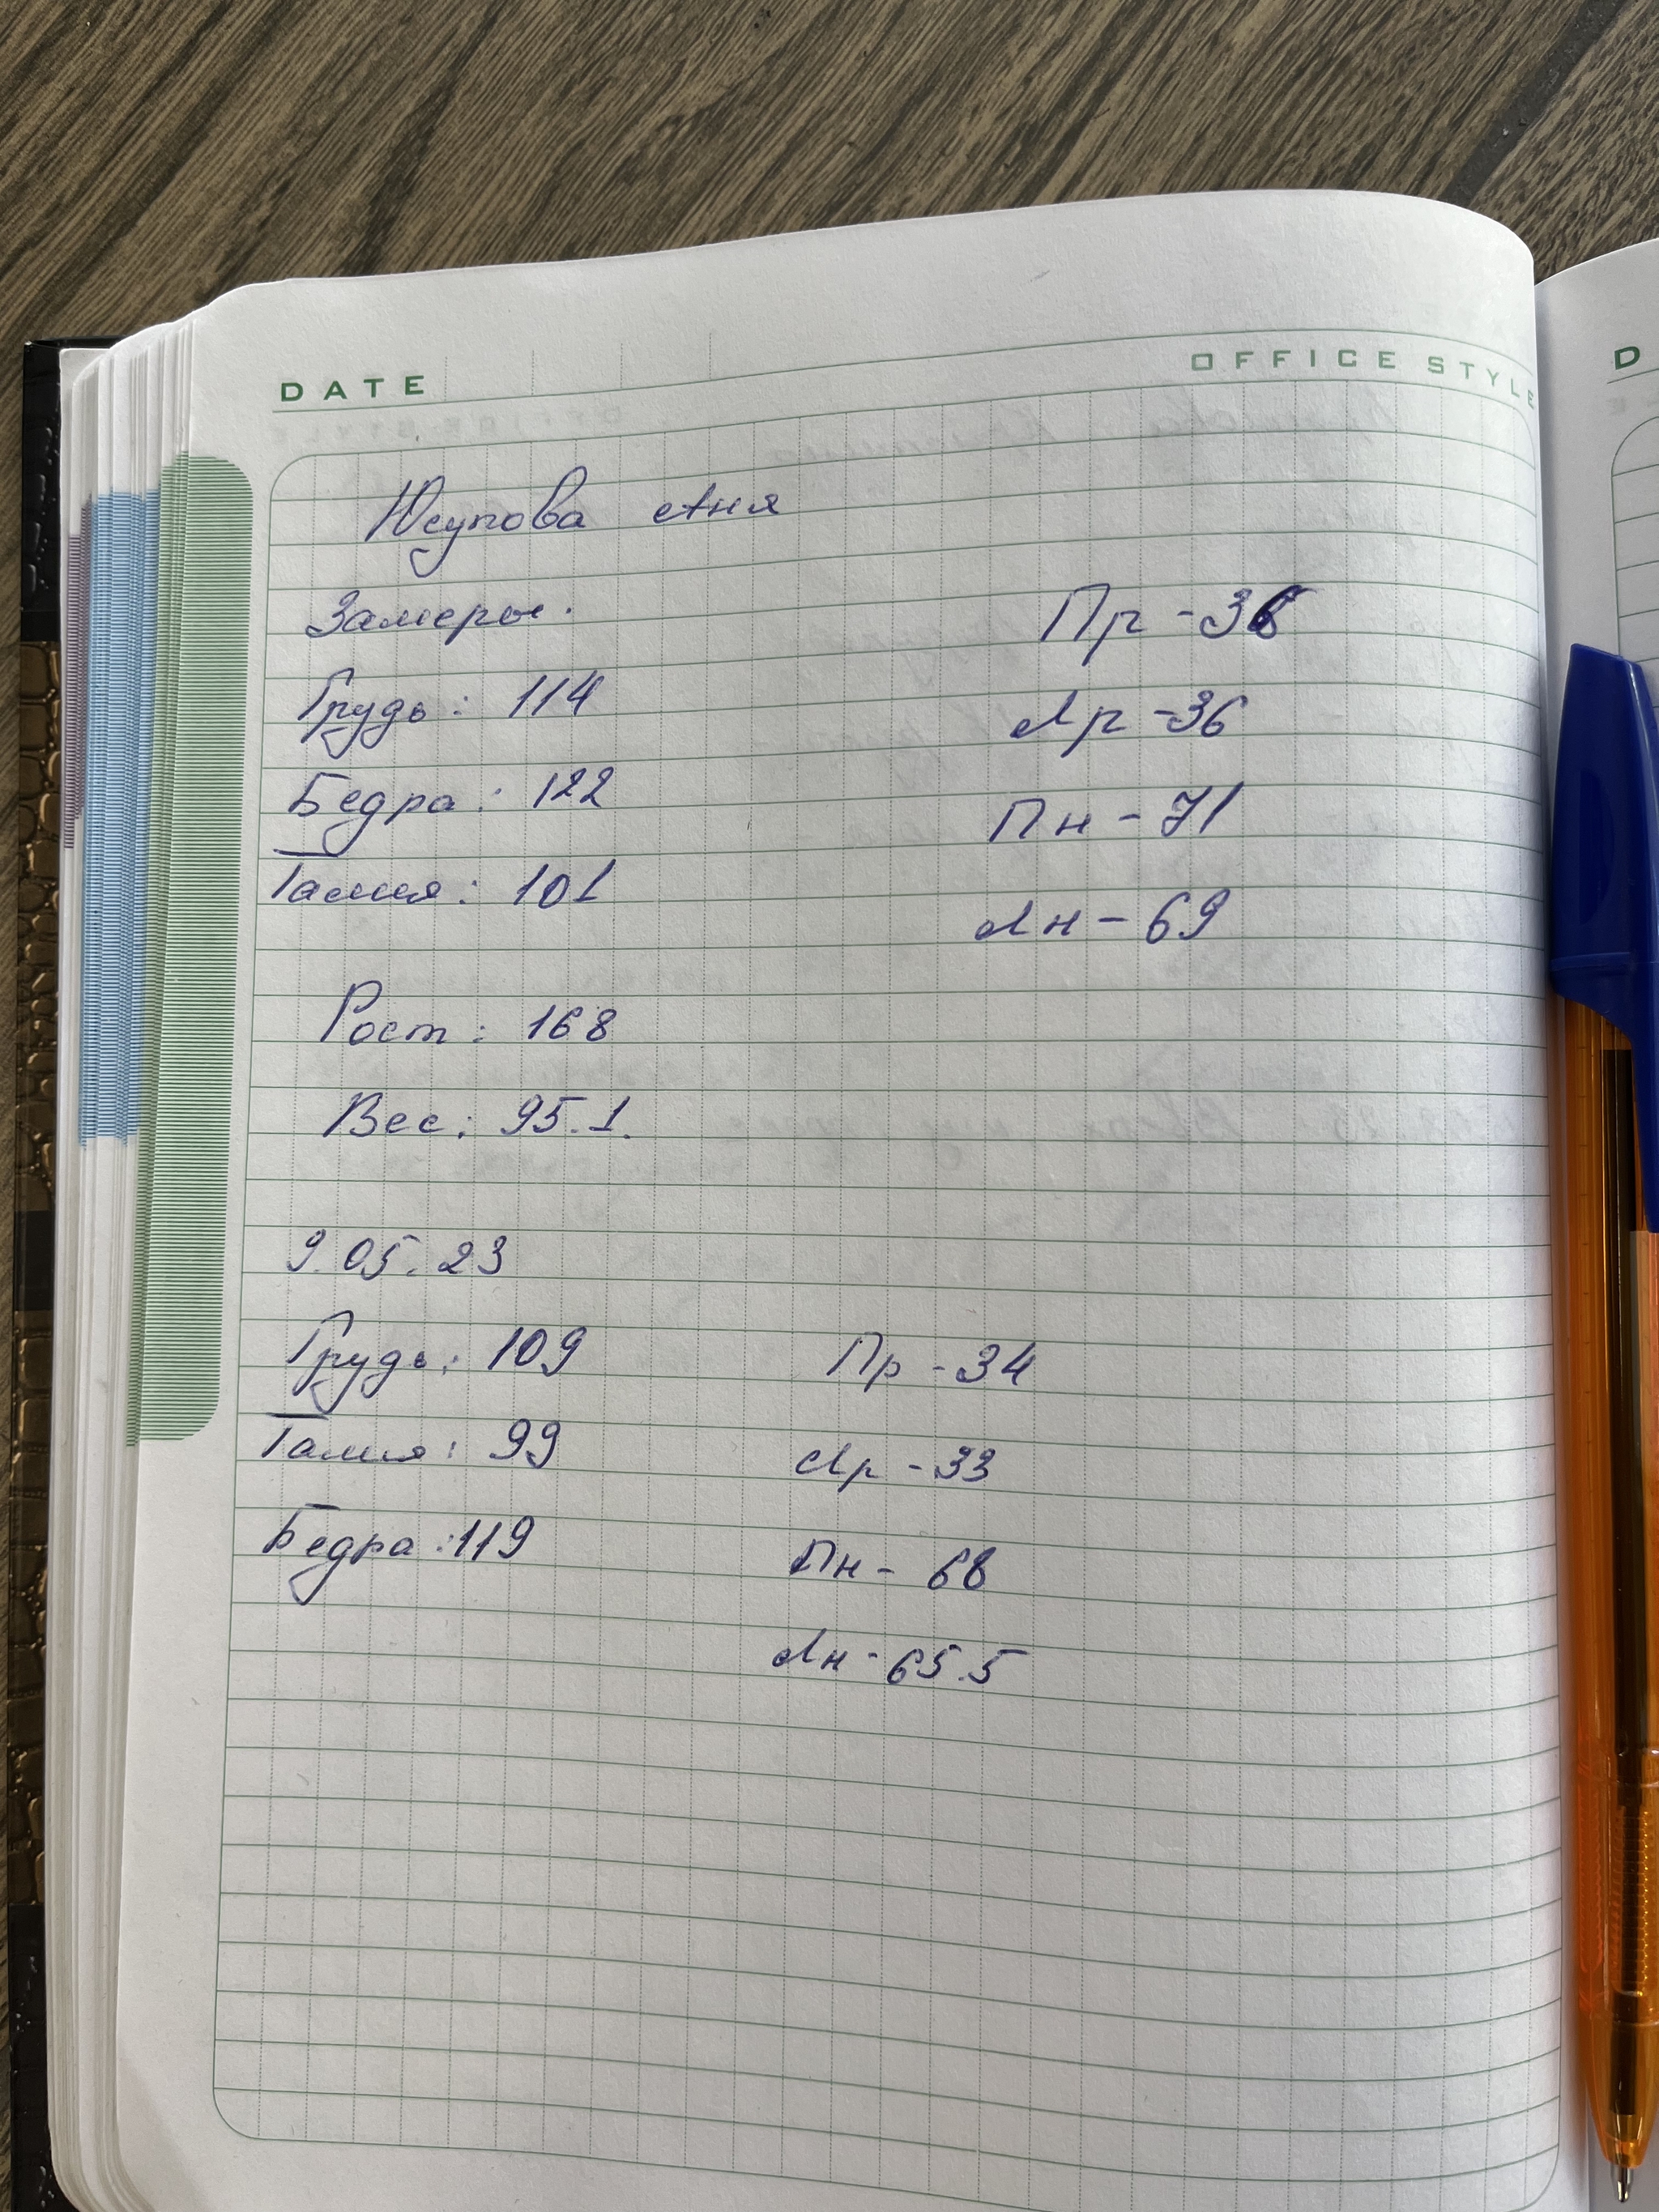 DATE OFFICE STYLE
Юсупова Аня
Замеры.
Пр - 36
Грудь: 114
Лр - 36
Бедра: 122
Пн - 71
Талия: 101
Лн - 69
Рост: 168
Вес: 95.1.
9.05.23
Грудь: 109 Пр - 34
Талия: 99 Лр - 33
Бедра: 119 Пн - 68
Лн - 65.5